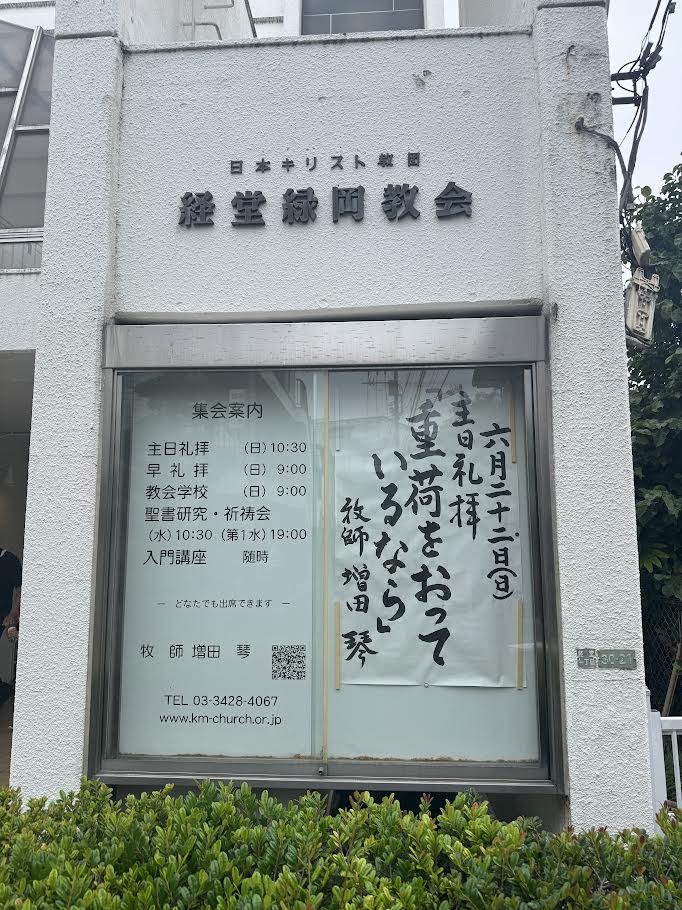 日本キリスト教団
経堂緑岡教会
集会案内
主日礼拝 (日) 10:30
早礼拝 (日) 9:00
教会学校 (日) 9:00
聖書研究・祈祷会
(水) 10:30 (第1水) 19:00
入門講座 随時
― どなたでも出席できます ―
牧師 増田 琴
TEL 03-3428-4067
www.km-church.or.jp
六月二十二日(日)
主日礼拝
「重荷をおって
いるなら」
牧師 増田 琴
30-21